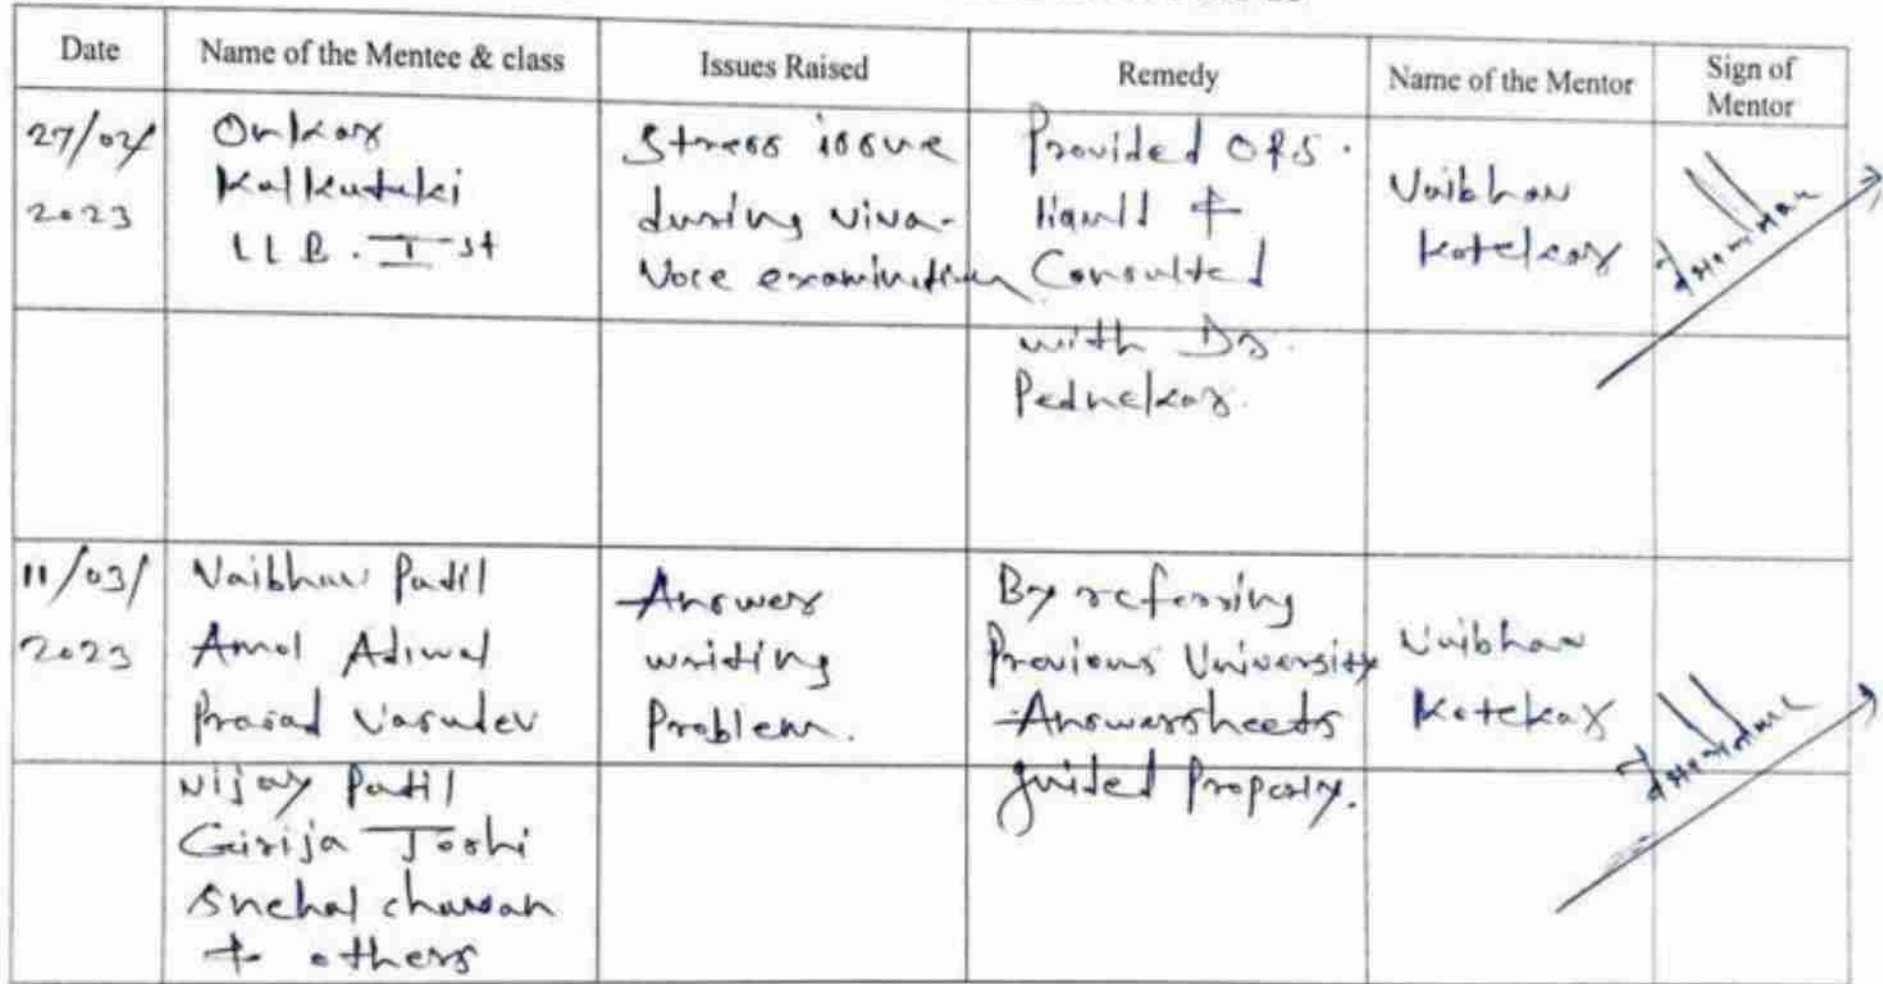 Date
Name of the Mentee & class
Issues Raised
Remedy
Name of the Mentor
Sign of
Mentor
27/02/
2023
Onkar
Kalkutaki
LLB. I st
Stress issue
during viva-
Voce examination
Provided ORS.
liquid &
Consulted
with Dr.
Pednekar.
Vaibhav
Kotekar
11/03/
2023
Vaibhav Patil
Amol
Prasad Vasudev
Vijay Patil
Girija Joshi
Snehal chavan
& others
Answer
writing
Problem.
By referring
Previous University
Answersheets
guided Properly.
Vaibhav
Kotekar